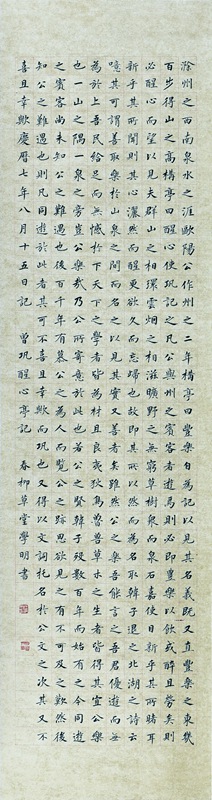 滁州之西南泉水之涯歐陽公作州之二年構亭曰豐樂自為記以見其名義既又直豐樂之東幾
百步得山之高構亭曰醒心使鞏記之凡公與州之賓客者遊焉則必即豐樂以飲或醉且勞矣則
必醒心而望以見夫群山之相環雲烟之相滋曠野之無窮草樹衆而泉石嘉使目新乎其所睹耳
新乎其所聞則其心灑然而醒更欲久而忘歸也故即其所以然而為名取韓子退之北湖之詩云
噫其可謂善取樂於山泉之間而名之以見其實又善者矣雖然公之樂吾能言之吾君優游而無
為於上吾民給足而無憾於下天下之學者皆為材且良夷狄鳥獸草木之生者皆得其宜公樂
也一山之隅一泉之旁豈公樂哉乃公所寄意於此也若公之賢韓子歿數百年而始有之今同遊
之賓客尚未知公之難遇也後百千年有慕公之為人而覽公之跡思欲見之有不可及之歎然後
知公之難遇也則凡同遊於此者其可不喜且幸歟而鞏也又得以文詞托名於公文之次其又不
喜且幸歟慶曆七年八月十五日記 曾鞏醒心亭記 春柳草堂學明書